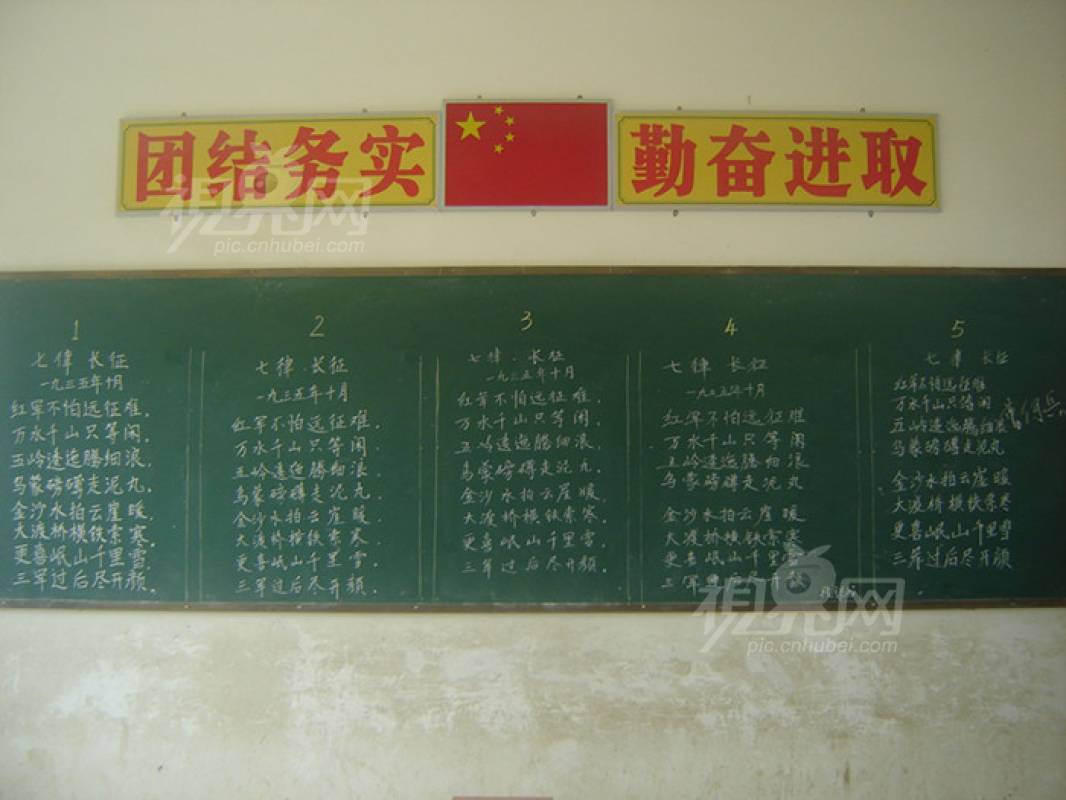 团结务实
勤奋进取
视界网
pic.cnhubei.com
1
七律 长征
一九三五年十月
红军不怕远征难，
万水千山只等闲。
五岭逶迤腾细浪，
乌蒙磅礴走泥丸。
金沙水拍云崖暖，
大渡桥横铁索寒。
更喜岷山千里雪，
三军过后尽开颜。
2
七律·长征
一九三五年十月
红军不怕远征难，
万水千山只等闲。
五岭逶迤腾细浪，
乌蒙磅礴走泥丸。
金沙水拍云崖暖，
大渡桥横铁索寒。
更喜岷山千里雪，
三军过后尽开颜。
3
七律·长征
一九三五年十月
红军不怕远征难，
万水千山只等闲。
五岭逶迤腾细浪，
乌蒙磅礴走泥丸。
金沙水拍云崖暖，
大渡桥横铁索寒。
更喜岷山千里雪，
三军过后尽开颜。
4
七律 长征
一九三五年十月
红军不怕远征难
万水千山只等闲
五岭逶迤腾细浪
乌蒙磅礴走泥丸
金沙水拍云崖暖
大渡桥横铁索寒
更喜岷山千里雪
三军过后尽开颜
5
七律 长征
红军不怕远征难
万水千山只等闲
五岭逶迤腾细浪
乌蒙磅礴走泥丸
金沙水拍云崖暖
大渡桥横铁索寒
更喜岷山千里雪
三军过后尽开颜
视界网
pic.cnhubei.com